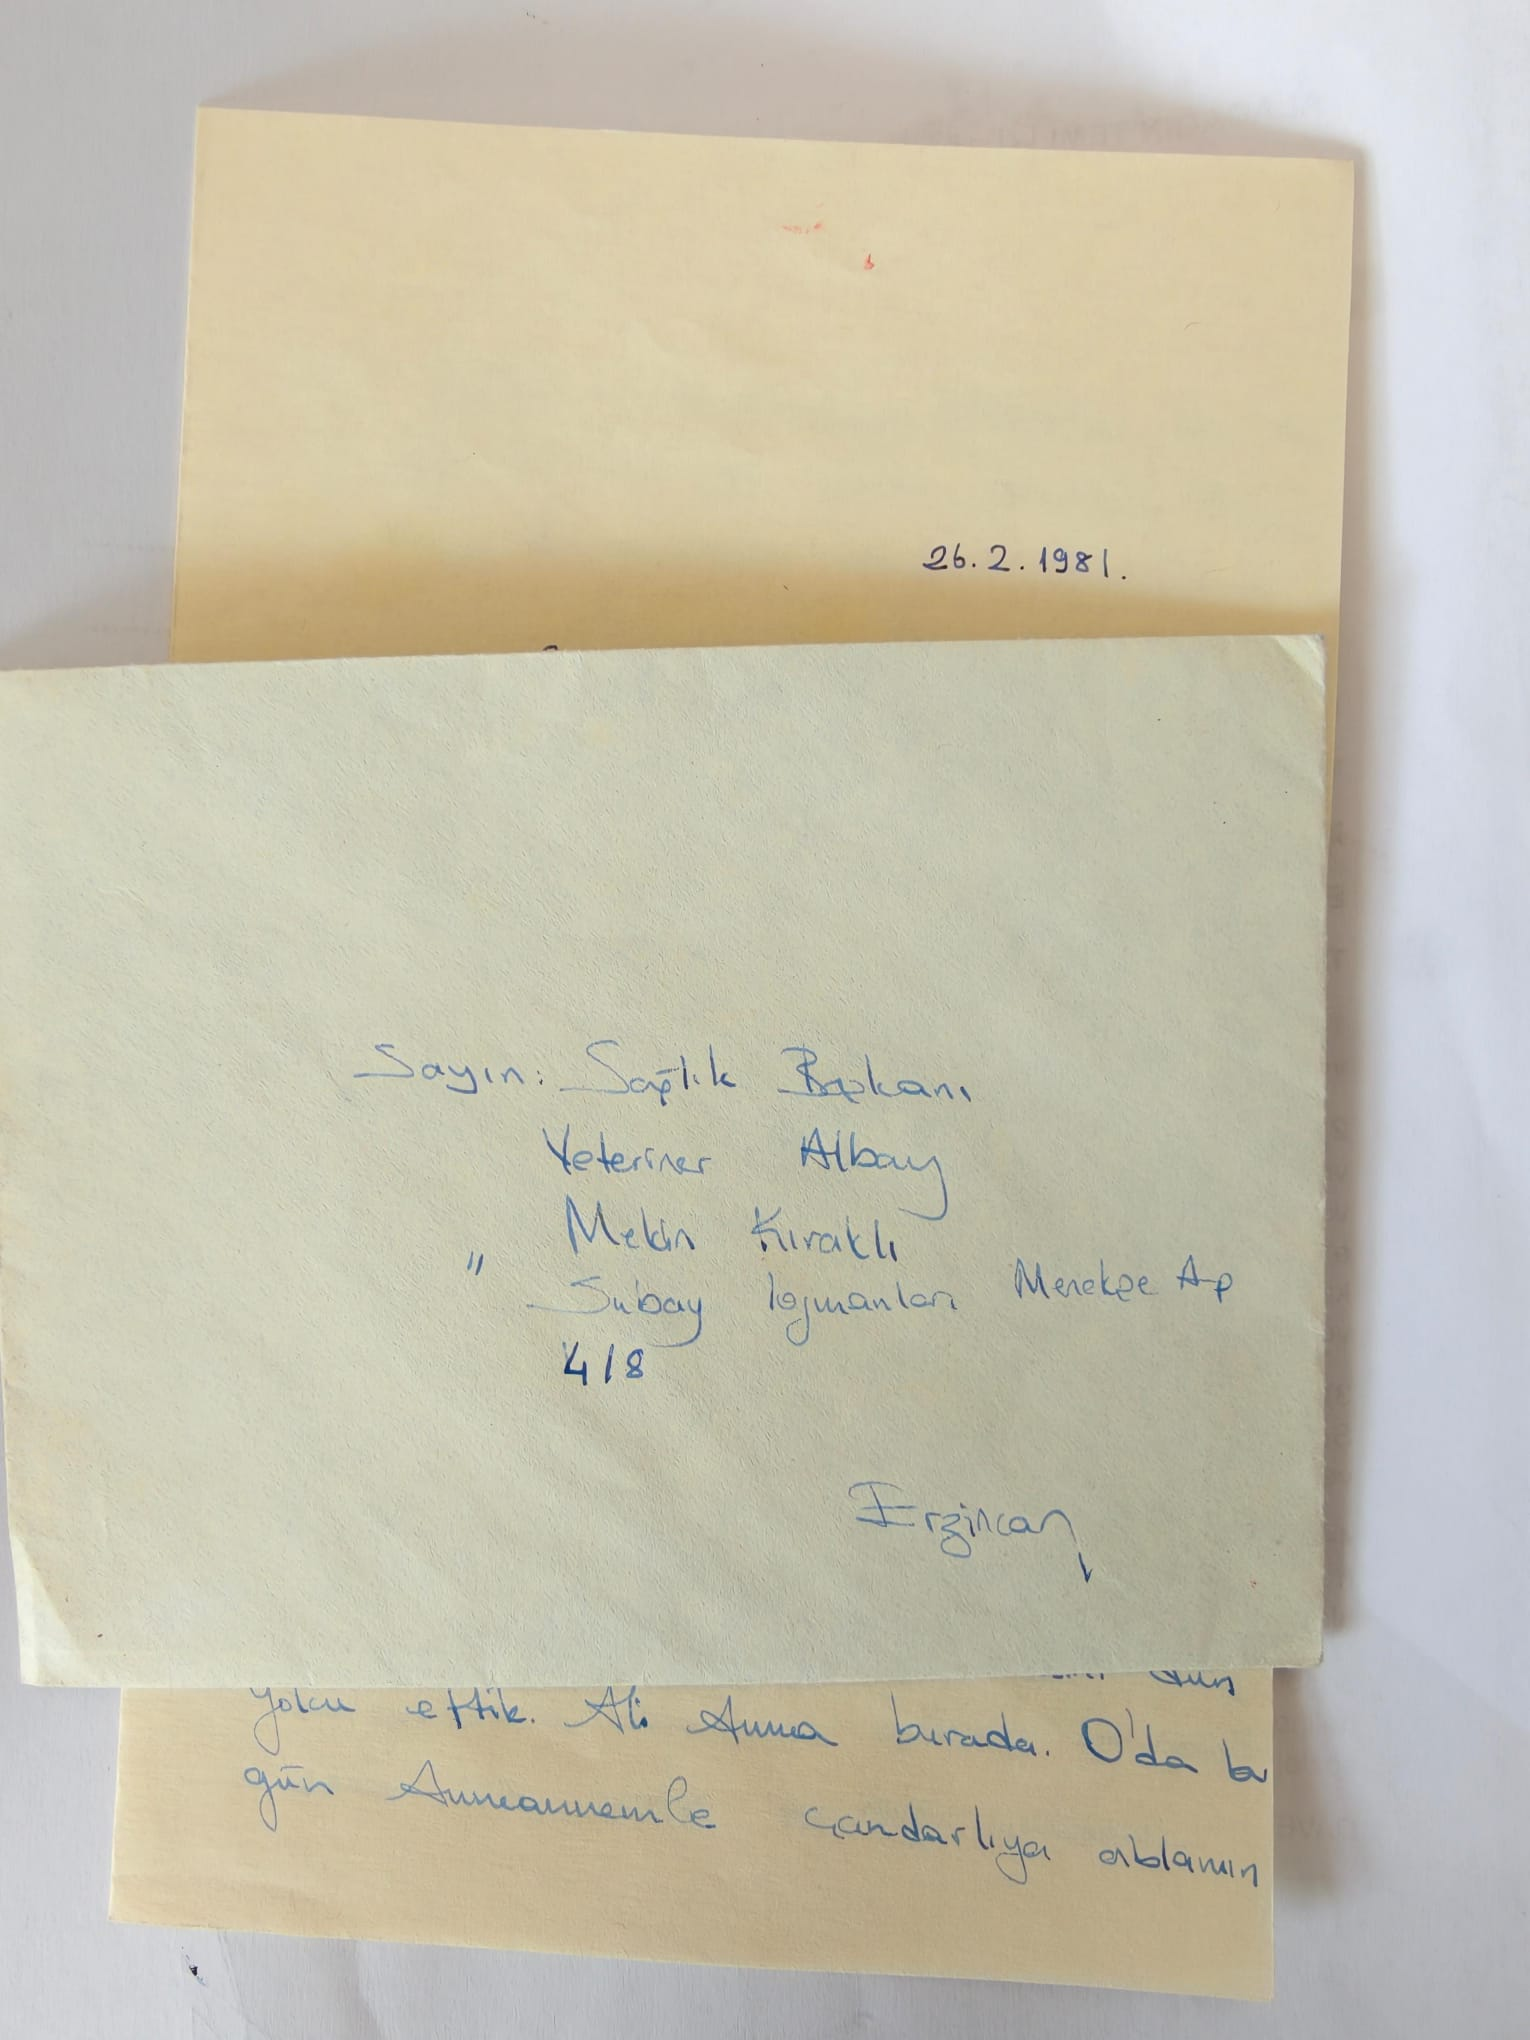 26.2.1981.
Sayın: Sağlık Başkanı
Veteriner Albay
Mekin Kıraklı
" Subay lojmanları Menekşe Ap
4/8
Erzincan
yolcu ettik. Ali Amca burada. O'da bu
gün Anneannemle Çandarlıya ablamın